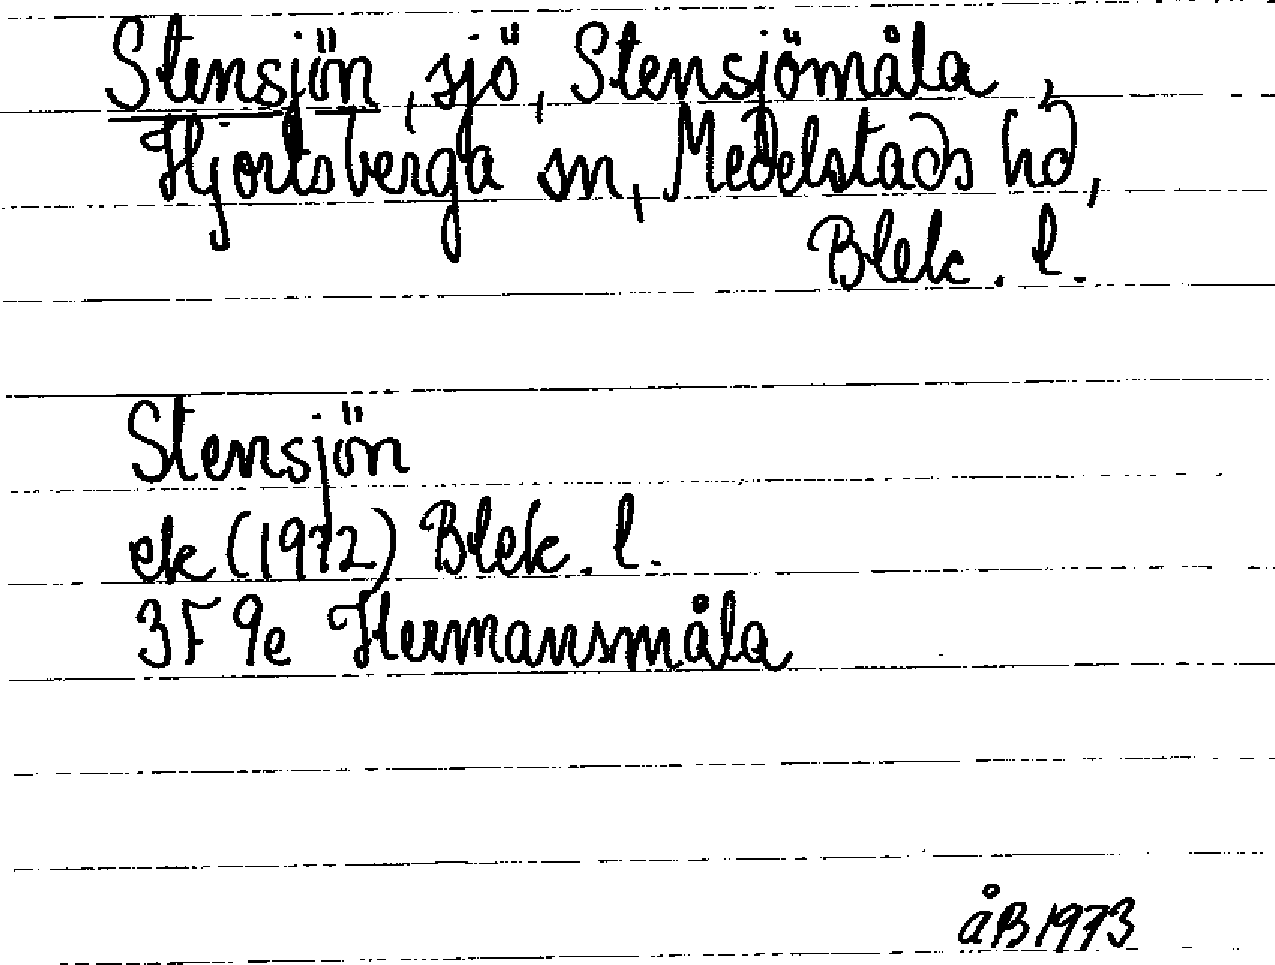 Stensjön, sjö, Stensjömåla,
Hjortsberga sn, Medelstads hd,
Blek. l.
Stensjön
ek (1972) Blek. l.
3F 9e Hermansmåla
åB 1973